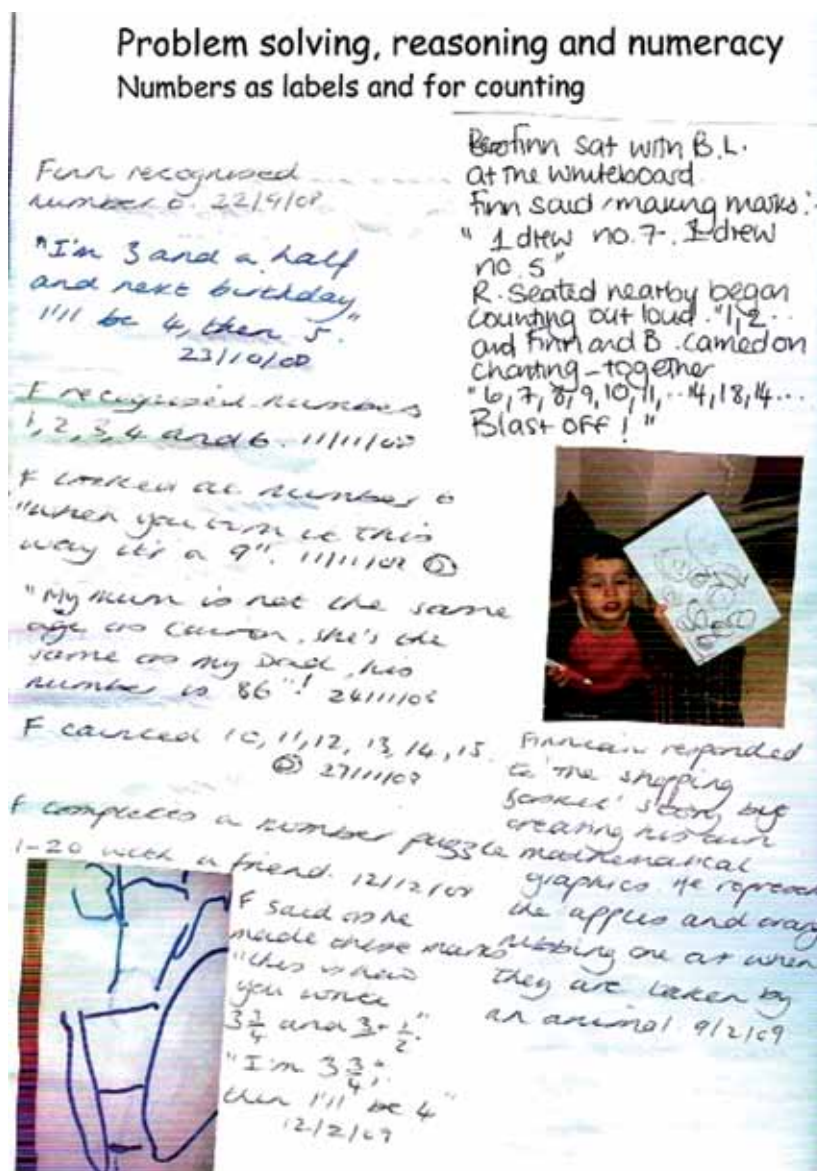 Problem solving, reasoning and numeracy
Numbers as labels and for counting
Finn recognised
number 6. 22/9/08
"I'm 3 and a half
and next birthday
I'll be 4, then 5."
23/10/08
F recognised numbers
1, 2, 3, 4 and 6. 11/11/08
F looked at number 6
"when you turn it this
way it's a 9". 11/11/08
"My mum is not the same
age as, she's the
same as my Dad, his
number is 86"! 24/11/08
F counted 10, 11, 12, 13, 14, 15.
27/11/08
F completes a number puzzle
1-20 with a friend. 12/12/08
F said as he
made these marks
"this is how
you write
3 3/4 and 3 1/2."
"I'm 3 3/4,
then I'll be 4"
12/2/09
Finn sat with B.L.
at the whiteboard
Finn said, making marks:-
"I drew no. 7. I drew
no. 5"
R. seated nearby began
counting out loud. "1, 2...
and Finn and B. carried on
chanting together
"6, 7, 8, 9, 10, 11, ...14, 18, 14...
Blast off!"
responded
to 'The shopping
basket' story by
creating his own
mathematical
graphics. He represen
the apples and orang
rubbing one out when
they are taken by
an animal 9/2/09